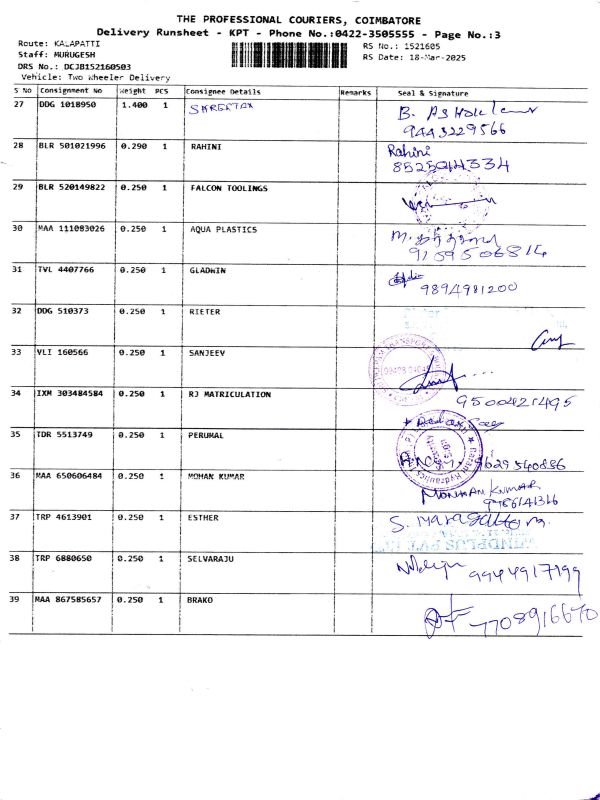 THE PROFESSIONAL COURIERS, COIMBATORE
Delivery Runsheet - KPT - Phone No.:0422-3505555 - Page No.:3
Route: KALAPATTI
RS No.: 1521605
Staff: MURUGESH
RS Date: 18-Mar-2025
DRS No.: DCJB152160503
Vehicle: Two Wheeler Delivery
S No Consignment No Weight PCS Consignee Details Remarks Seal & Signature
27 DDG 1018950 1.400 1
9443229566
28 BLR 501021996 0.290 1 RAHINI Rahini
29 BLR 520149822 0.250 1 FALCON TOOLINGS
30 MAA 111083026 0.250 1 AQUA PLASTICS
31 TVL 4407766 0.250 1 GLADWIN
9894981200
32 DDG 510373 0.250 1 RIETER
33 VLI 160566 0.250 1 SANJEEV
34 IXM 303484584 0.250 1 RJ MATRICULATION 9500421495
35 TDR 5513749 0.250 1 PERUMAL
9629540886
36 MAA 650606484 0.250 1 MOHAN KUMAR MOHAN KUMAR
37 TRP 4613901 0.250 1 ESTHER
38 TRP 6880650 0.250 1 SELVARAJU
9944917199
39 MAA 867585657 0.250 1 BRAKO
7708916670